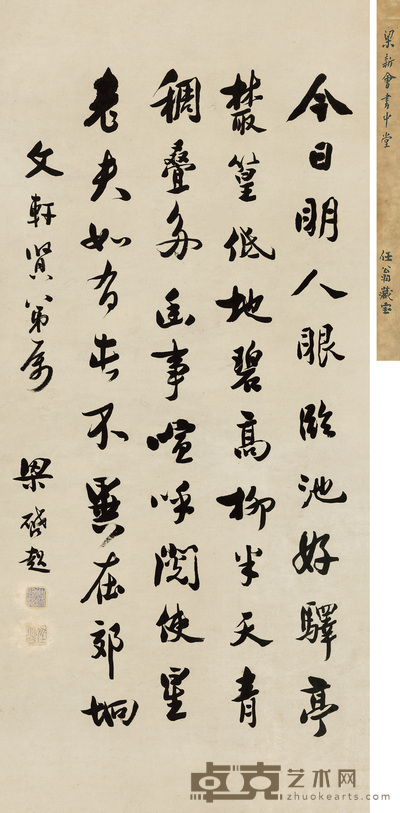 今日明人眼臨池好驛亭
叢篁低地碧高柳半天青
稠叠多幽事喧呼閱使星
老夫如有此不異在郊坰
文軒賢弟属
梁啟超
梁新會書中堂
任翁藏
卓克艺术网
zhuokearts.com